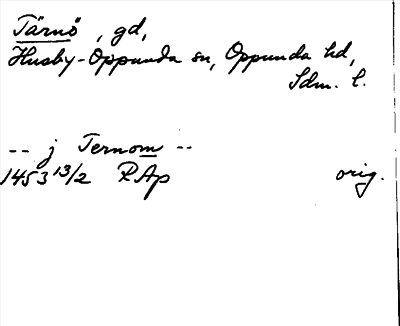 Tärnö, gd,
Husby-Oppunda sn, Oppunda hd,
Sdm. l.
-- j Ternom --
1453 13/2 RAp orig.